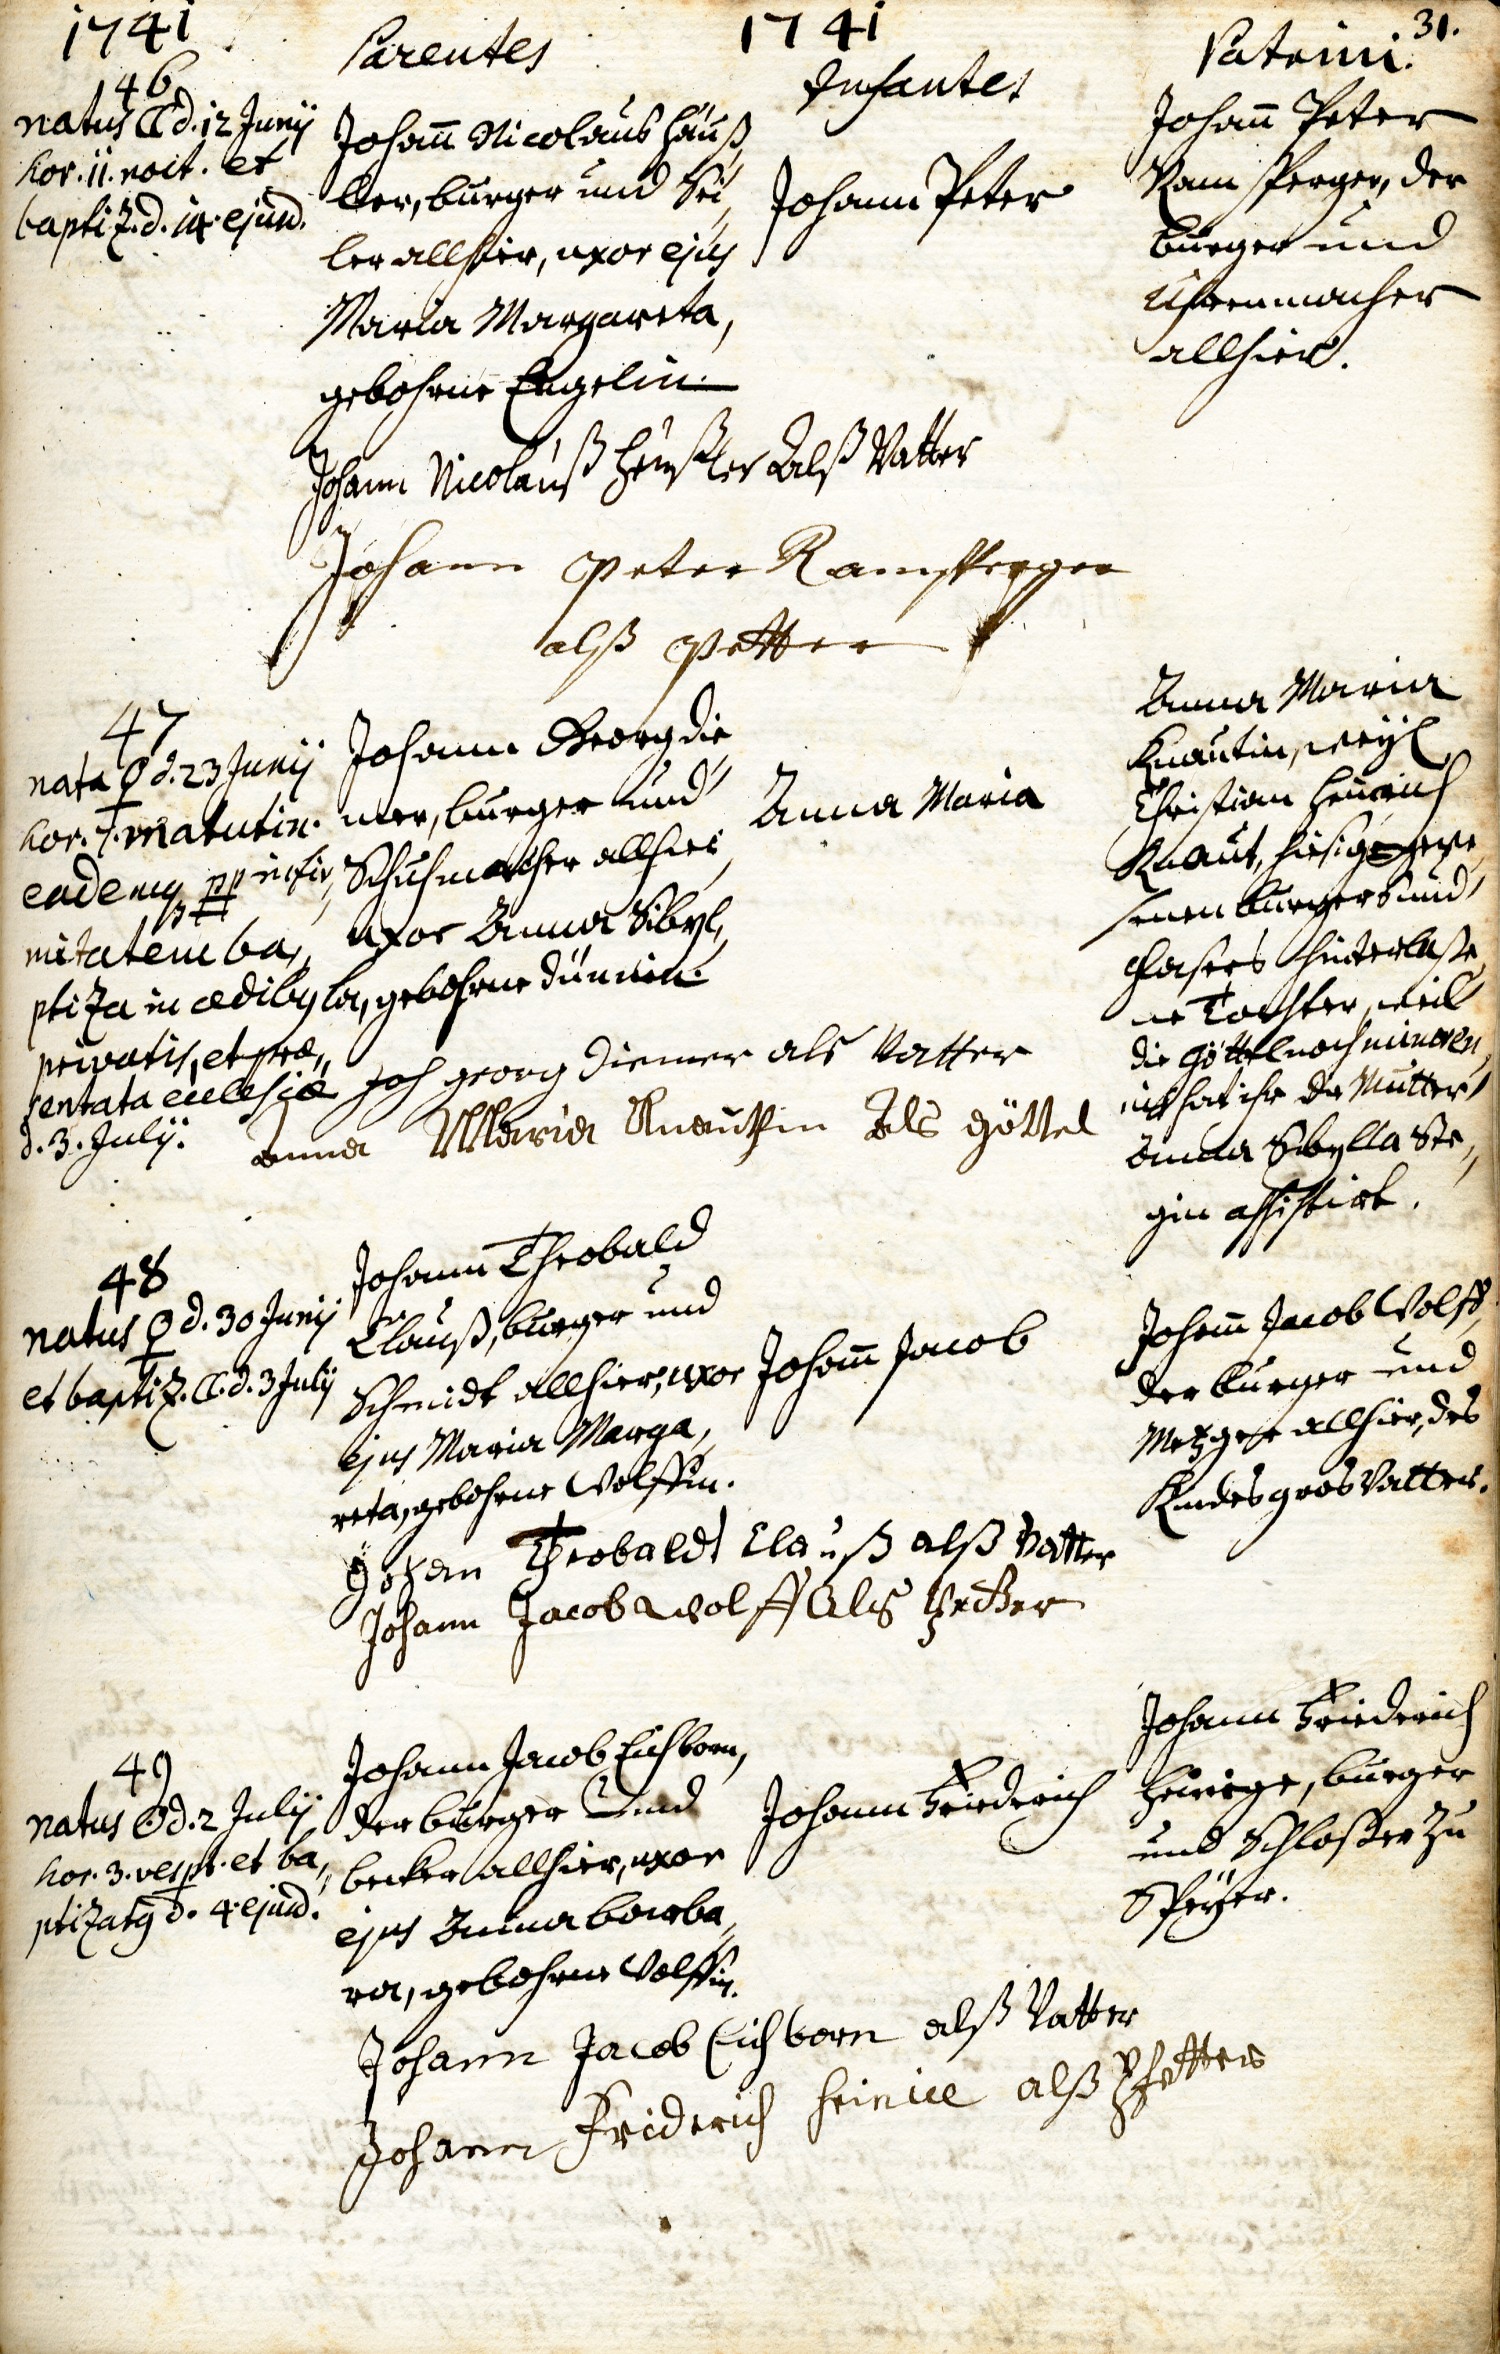 1741 1741 31.
Parentes Infantes Patrini.
46
natus ☾ d. 12 Junij
hor. 11. noct. et
baptiz. d. 14. ejusd.
Johann̄ Nicolaus Häuß,
ler, burger und Sei,
ler allhier, uxor ejus
Maria Margareta,
gebohrne Engelin.
Johann Peter
Johann̄ Peter
Ram sperger, der
burger und
Uhrenmacher
allhier.
Johann Nicolauß Heußler Alß Vatter
Johann peter Ramsperger
alß petter
47
nata ♀ d. 23 Junij
hor. 7. matutin.
eademq, pp infir,
mitatem ba,
ptiza in ædibq
privatis, et præ,
sentata ecclesiæ
d. 3. Julij.
Johann Georg Die
mer, burger und
Schuhmacher allhier,
uxor Anna Sibyl,
la, gebohrne Dümmin.
Anna Maria
Anna Maria
Knautin, weyl.
Christian Heinrich
Knaut, hiesig gewe,
senen burgers und
hinterlaße,
ne Tochter, weil
die Göttel noch minoren,
ist hat ihr die Mutter
Anna Sibylla Ste,
gin assistirt.
Joh georg Diemer als Vatter
anna Maria Knauthin Als göttel
48
natus ♀ d. 30 Junij
et baptiz. ☾. d. 3 Julij
Johann Theobald
Clauß, burger und
Schmidt allhier, uxor
ejus Maria Marga,
reta, gebohrne Wolffin.
Johann̄ Jacob
Johann̄ Jacob Wolff,
der burger und
Metzger allhier, des
Kindes gros Vatter.
Johan Theobaldt Clauß alß Vatter
Johann Jacob Wolff Als petter
49
natus ☉ d. 2 Julij
hor. 3. vesp. et ba,
ptizatq d. 4. ejusd.
Johann Jacob Eichborn,
der burger und
becker allhier, uxor
ejus Anna barba,
ra, gebohrne Wolffin.
Johann Friederich
Johann Friederich
burger
und Schloßer zu
Speyer.
Johann Jacob Eichborn alß Vatter
Johann Friderich heinice alß Pfetter